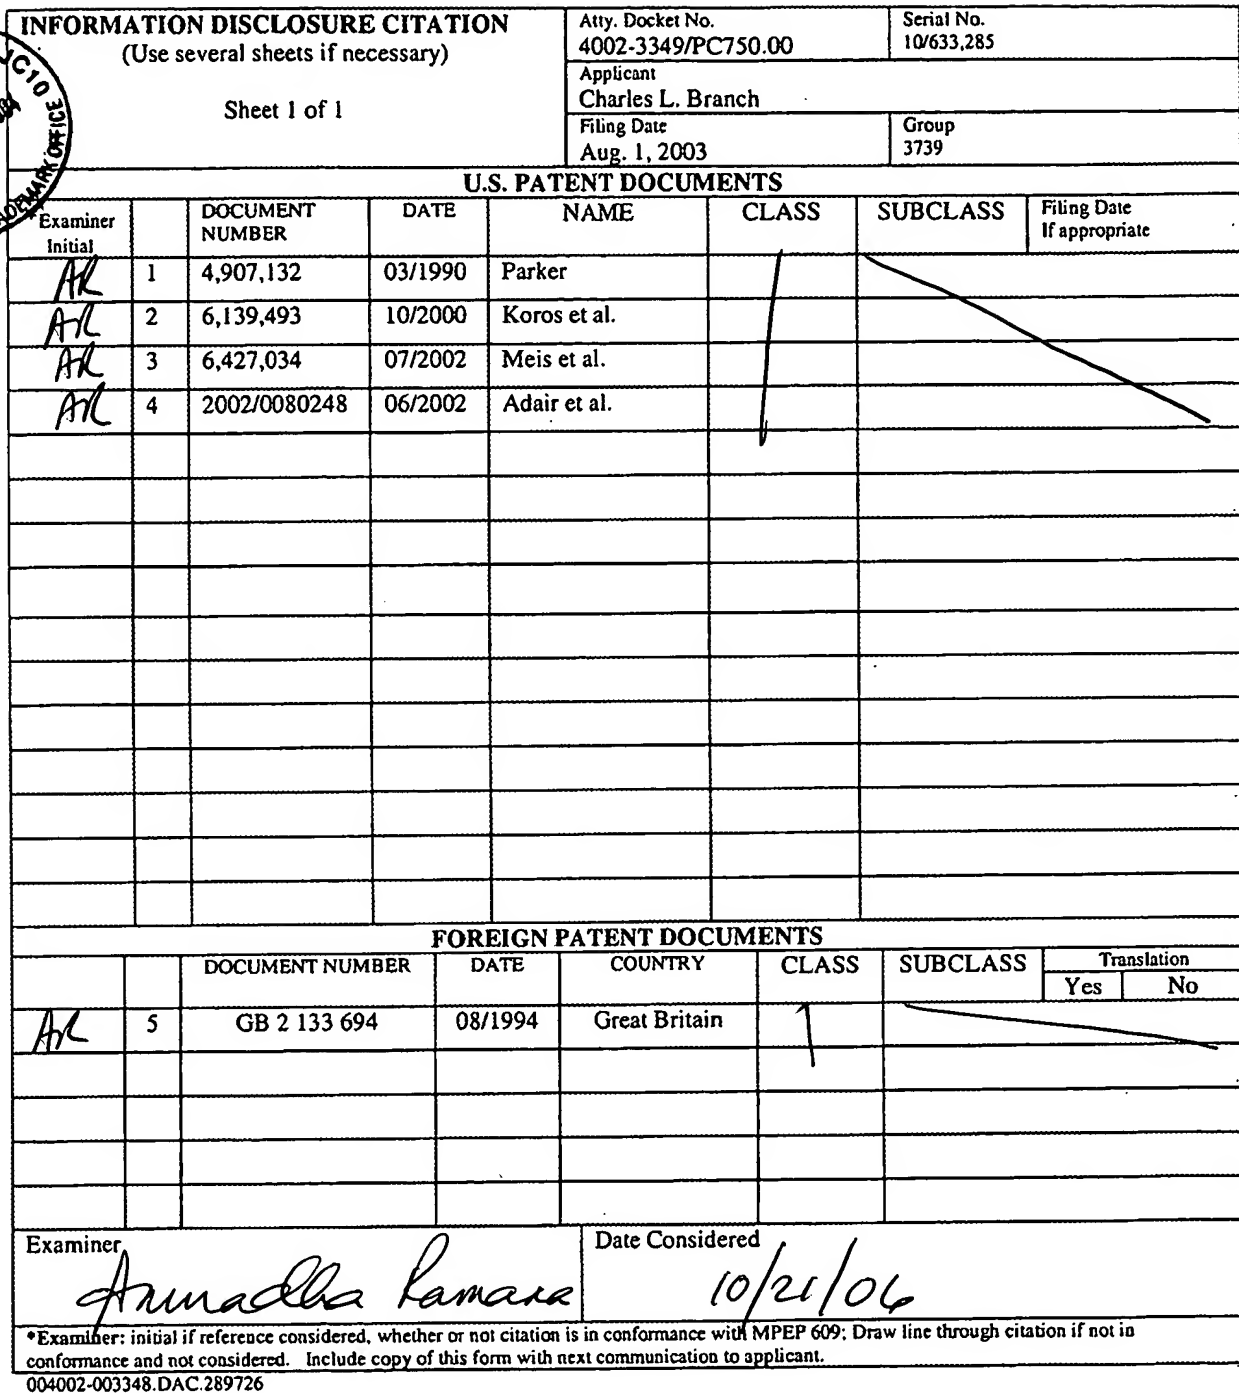 INFORMATION DISCLOSURE CITATION
(Use several sheets if necessary)
Sheet 1 of 1
Atty. Docket No.
4002-3349/PC750.00
Serial No.
10/633,285
Applicant
Charles L. Branch
Filing Date
Aug. 1, 2003
Group
3739
JC10
OFFICE
U.S. PATENT DOCUMENTS
Examiner Initial DOCUMENT NUMBER DATE NAME CLASS SUBCLASS Filing Date If appropriate
AR 1 4,907,132 03/1990 Parker
AR 2 6,139,493 10/2000 Koros et al.
AR 3 6,427,034 07/2002 Meis et al.
AR 4 2002/0080248 06/2002 Adair et al.
FOREIGN PATENT DOCUMENTS
DOCUMENT NUMBER DATE COUNTRY CLASS SUBCLASS Translation
Yes No
AR 5 GB 2 133 694 08/1994 Great Britain
Examiner
Anuradha Ramana
Date Considered
10/21/06
*Examiner: initial if reference considered, whether or not citation is in conformance with MPEP 609; Draw line through citation if not in
conformance and not considered. Include copy of this form with next communication to applicant.
004002-003348.DAC.289726